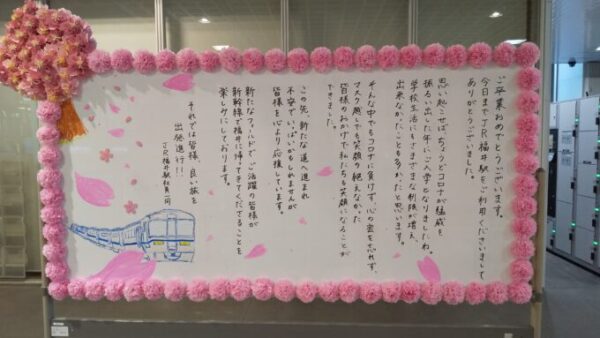 ご卒業おめでとうございます。
今日までJR福井駅をご利用くださいまして
ありがとうございました。
思い起こせば、ちょうどコロナが猛威を
振るい出した年にご入学となりましたね。
学校生活にもさまざまな制限が増え、
出来なかったことも多かったと思います。
そんな中でもコロナに負けず、心の密を忘れず、
マスク越しでも笑顔の絶えなかった
皆様のおかげで私たちも笑顔になることが
できました。
この先、新たな道へ進まれ
不安でいっぱいかもしれませんが
皆様を心より応援しています。
新たなフィールドでご活躍の皆様が
新幹線で福井に帰ってきてくださることを
楽しみにしております。
それでは皆様、良い旅を
出発進行!!!
JR福井駅社員一同